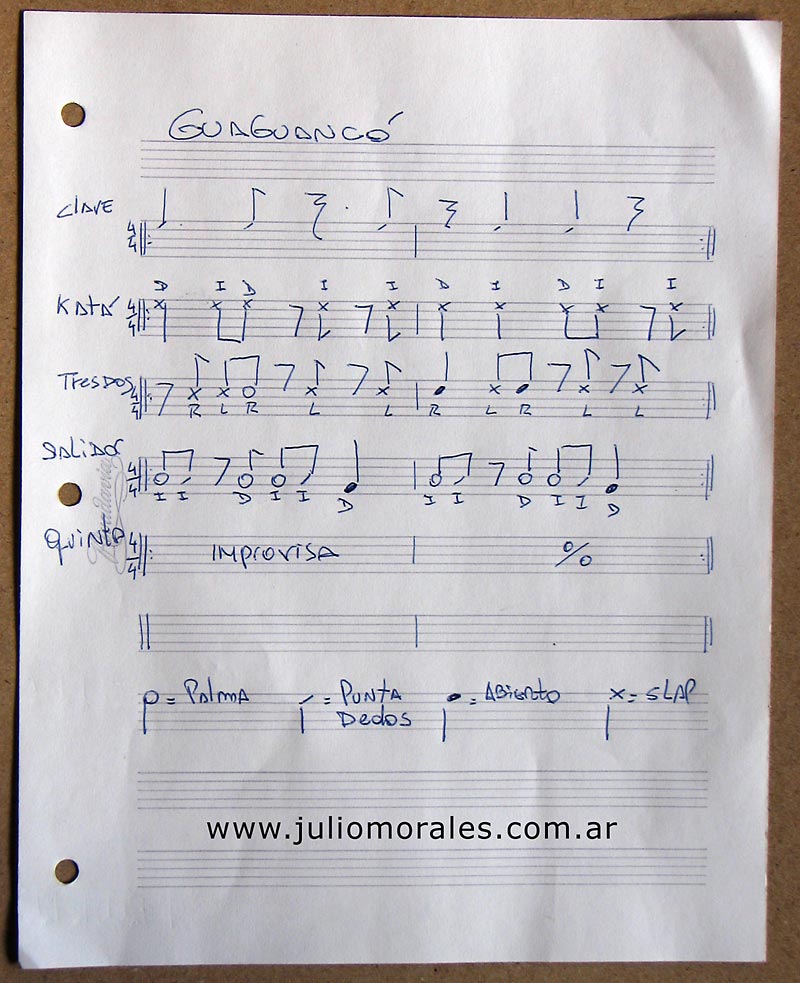 GUAGUANCÓ
CLAVE
4/4
D I D I I D I D I I
KATÁ 4/4
TRESDOS 4/4
R L R L L R L R L L
SALIDOR 4/4
I I D I I D I I D I I D
QUINTO 4/4 IMPROVISA %
= PALMA = PUNTA = ABIERTO X = SLAP
DEDOS
www.juliomorales.com.ar